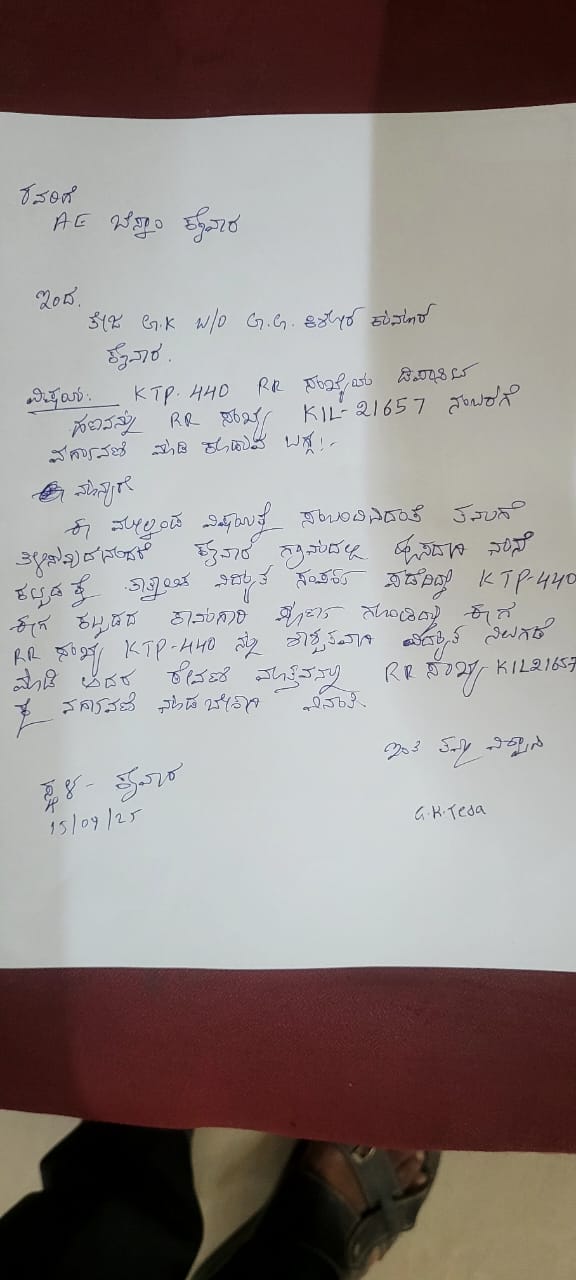 ರವರಿಗೆ
AE ಬೆಸ್ಕಾಂ ಕೈವಾರ
ಇಂದ.
ತೇಜ G.K W/O G.G. ಕಿಶೋರ್ ಕುಮಾರ್
ಕೈವಾರ.
ವಿಷಯ:- KTP-440 RR ಸಂಖ್ಯೆಯ ಡಿಪಾಸಿಟ್
ಹಣವನ್ನು RR ಸಂಖ್ಯೆ KIL-21657 ನಂಬರಿಗೆ
ವರ್ಗಾವಣೆ ಮಾಡಿ ಕೊಡುವ ಬಗ್ಗೆ:-
ಮಾನ್ಯರೇ
ಈ ಮೇಲ್ಕಂಡ ವಿಷಯಕ್ಕೆ ಸಂಬಂಧಿಸಿದಂತೆ ತಮಗೆ
ಕೈವಾರ ಗ್ರಾಮದಲ್ಲಿ ಮನೆ
ಕಟ್ಟಡಕ್ಕೆ ತಾತ್ಕಾಲಿಕ ವಿದ್ಯುತ್ ಸಂಪರ್ಕ ಪಡೆದಿದ್ದು KTP-440
ಈಗ ಕಟ್ಟಡದ ಕಾಮಗಾರಿ ಪೂರ್ಣ ಗೊಂಡಿದ್ದು ಈಗ
RR ಸಂಖ್ಯೆ KTP-440 ನ್ನು ಶಾಶ್ವತವಾಗಿ ವಿದ್ಯುತ್ ನಿಲುಗಡೆ
ಮಾಡಿ ಅದರ ಠೇವಣಿ ಮೊತ್ತವನ್ನು RR ಸಂಖ್ಯೆ KIL21657
ಕ್ಕೆ ವರ್ಗಾವಣೆ ಮಾಡಬೇಕಾಗಿ ವಿನಂತಿ.
ಇಂತಿ ತಮ್ಮ ವಿಶ್ವಾಸಿ
ಸ್ಥಳ - ಕೈವಾರ
15/09/25
G.K.Teja